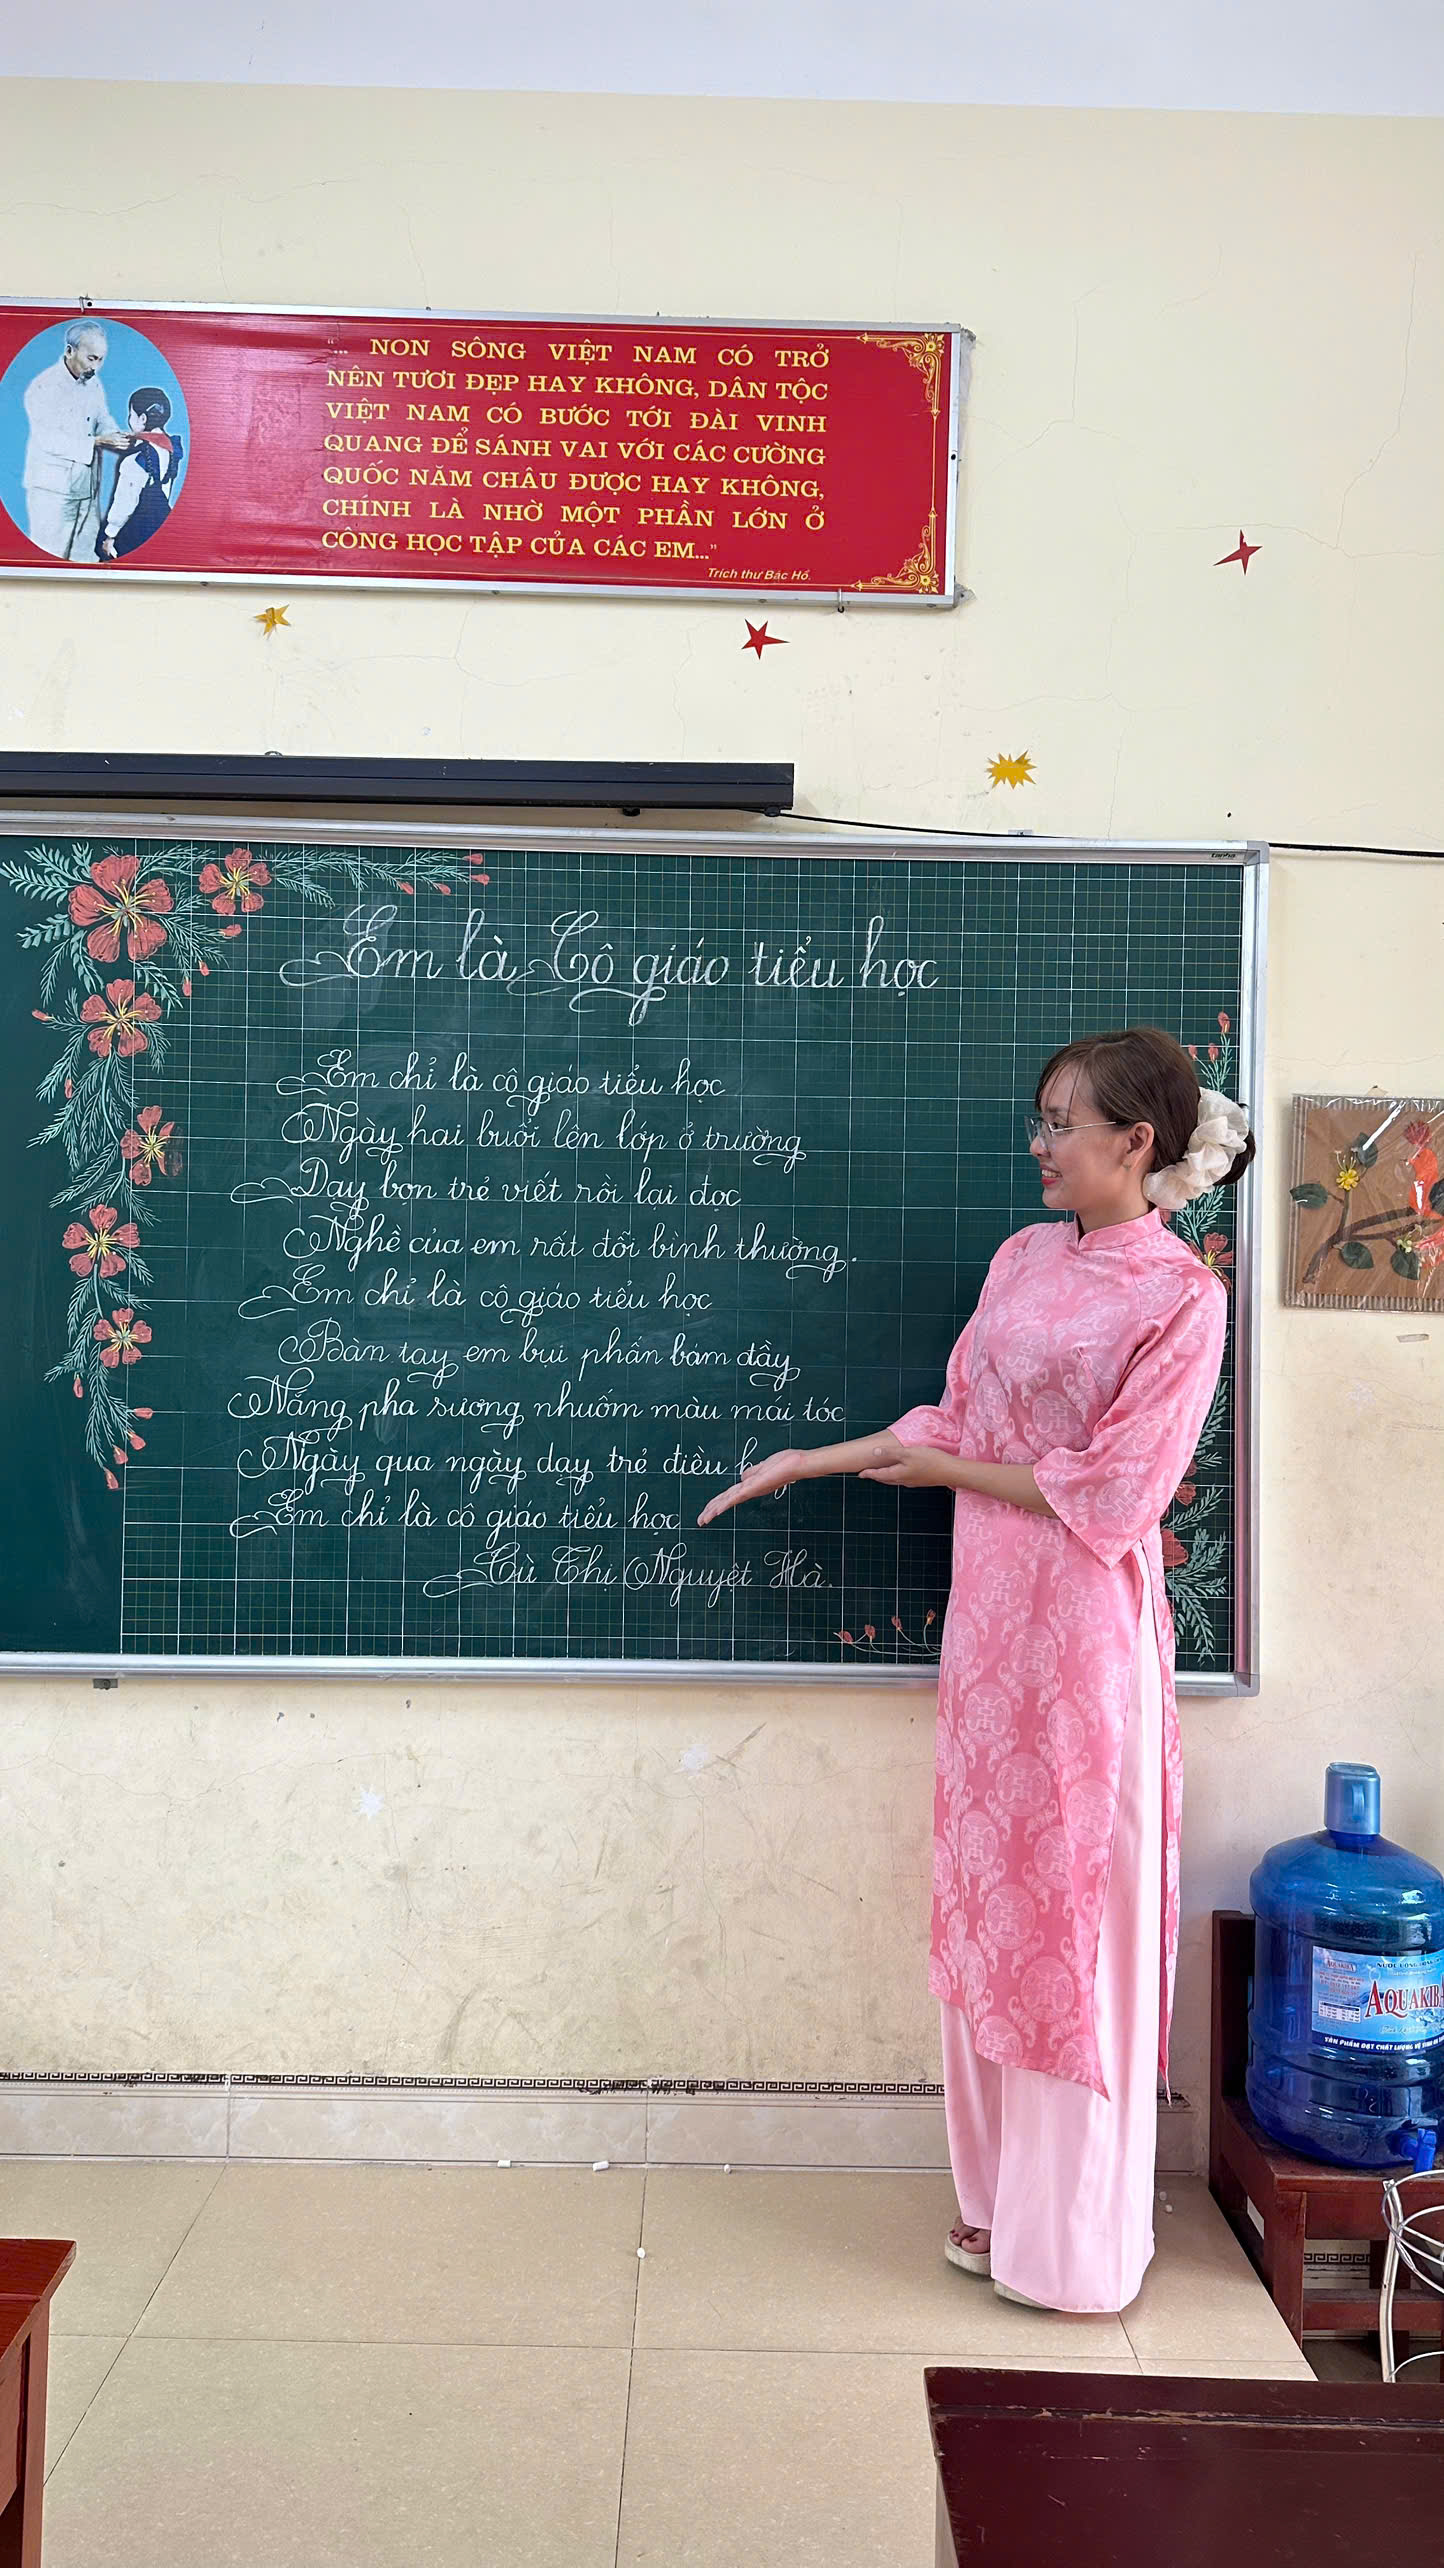 "... NON SÔNG VIỆT NAM CÓ TRỞ
NÊN TƯƠI ĐẸP HAY KHÔNG, DÂN TỘC
VIỆT NAM CÓ BƯỚC TỚI ĐÀI VINH
QUANG ĐỂ SÁNH VAI VỚI CÁC CƯỜNG
QUỐC NĂM CHÂU ĐƯỢC HAY KHÔNG,
CHÍNH LÀ NHỜ MỘT PHẦN LỚN Ở
CÔNG HỌC TẬP CỦA CÁC EM..."
Trích thư Bác Hồ.
Em là Cô giáo tiểu học
Em chỉ là cô giáo tiểu học
Ngày hai buổi lên lớp ở trường
Dạy bọn trẻ viết rồi lại đọc
Nghề của em rất đỗi bình thường.
Em chỉ là cô giáo tiểu học
Bàn tay em bụi phấn bám đầy
Nắng pha sương nhuốm màu mái tóc
Ngày qua ngày dạy trẻ điều
Em chỉ là cô giáo tiểu học
Cù Thị Nguyệt Hà.
AQUAKIBA
AQUAKIB
SẢN PHẨM ĐẠT CHẤT LƯỢNG